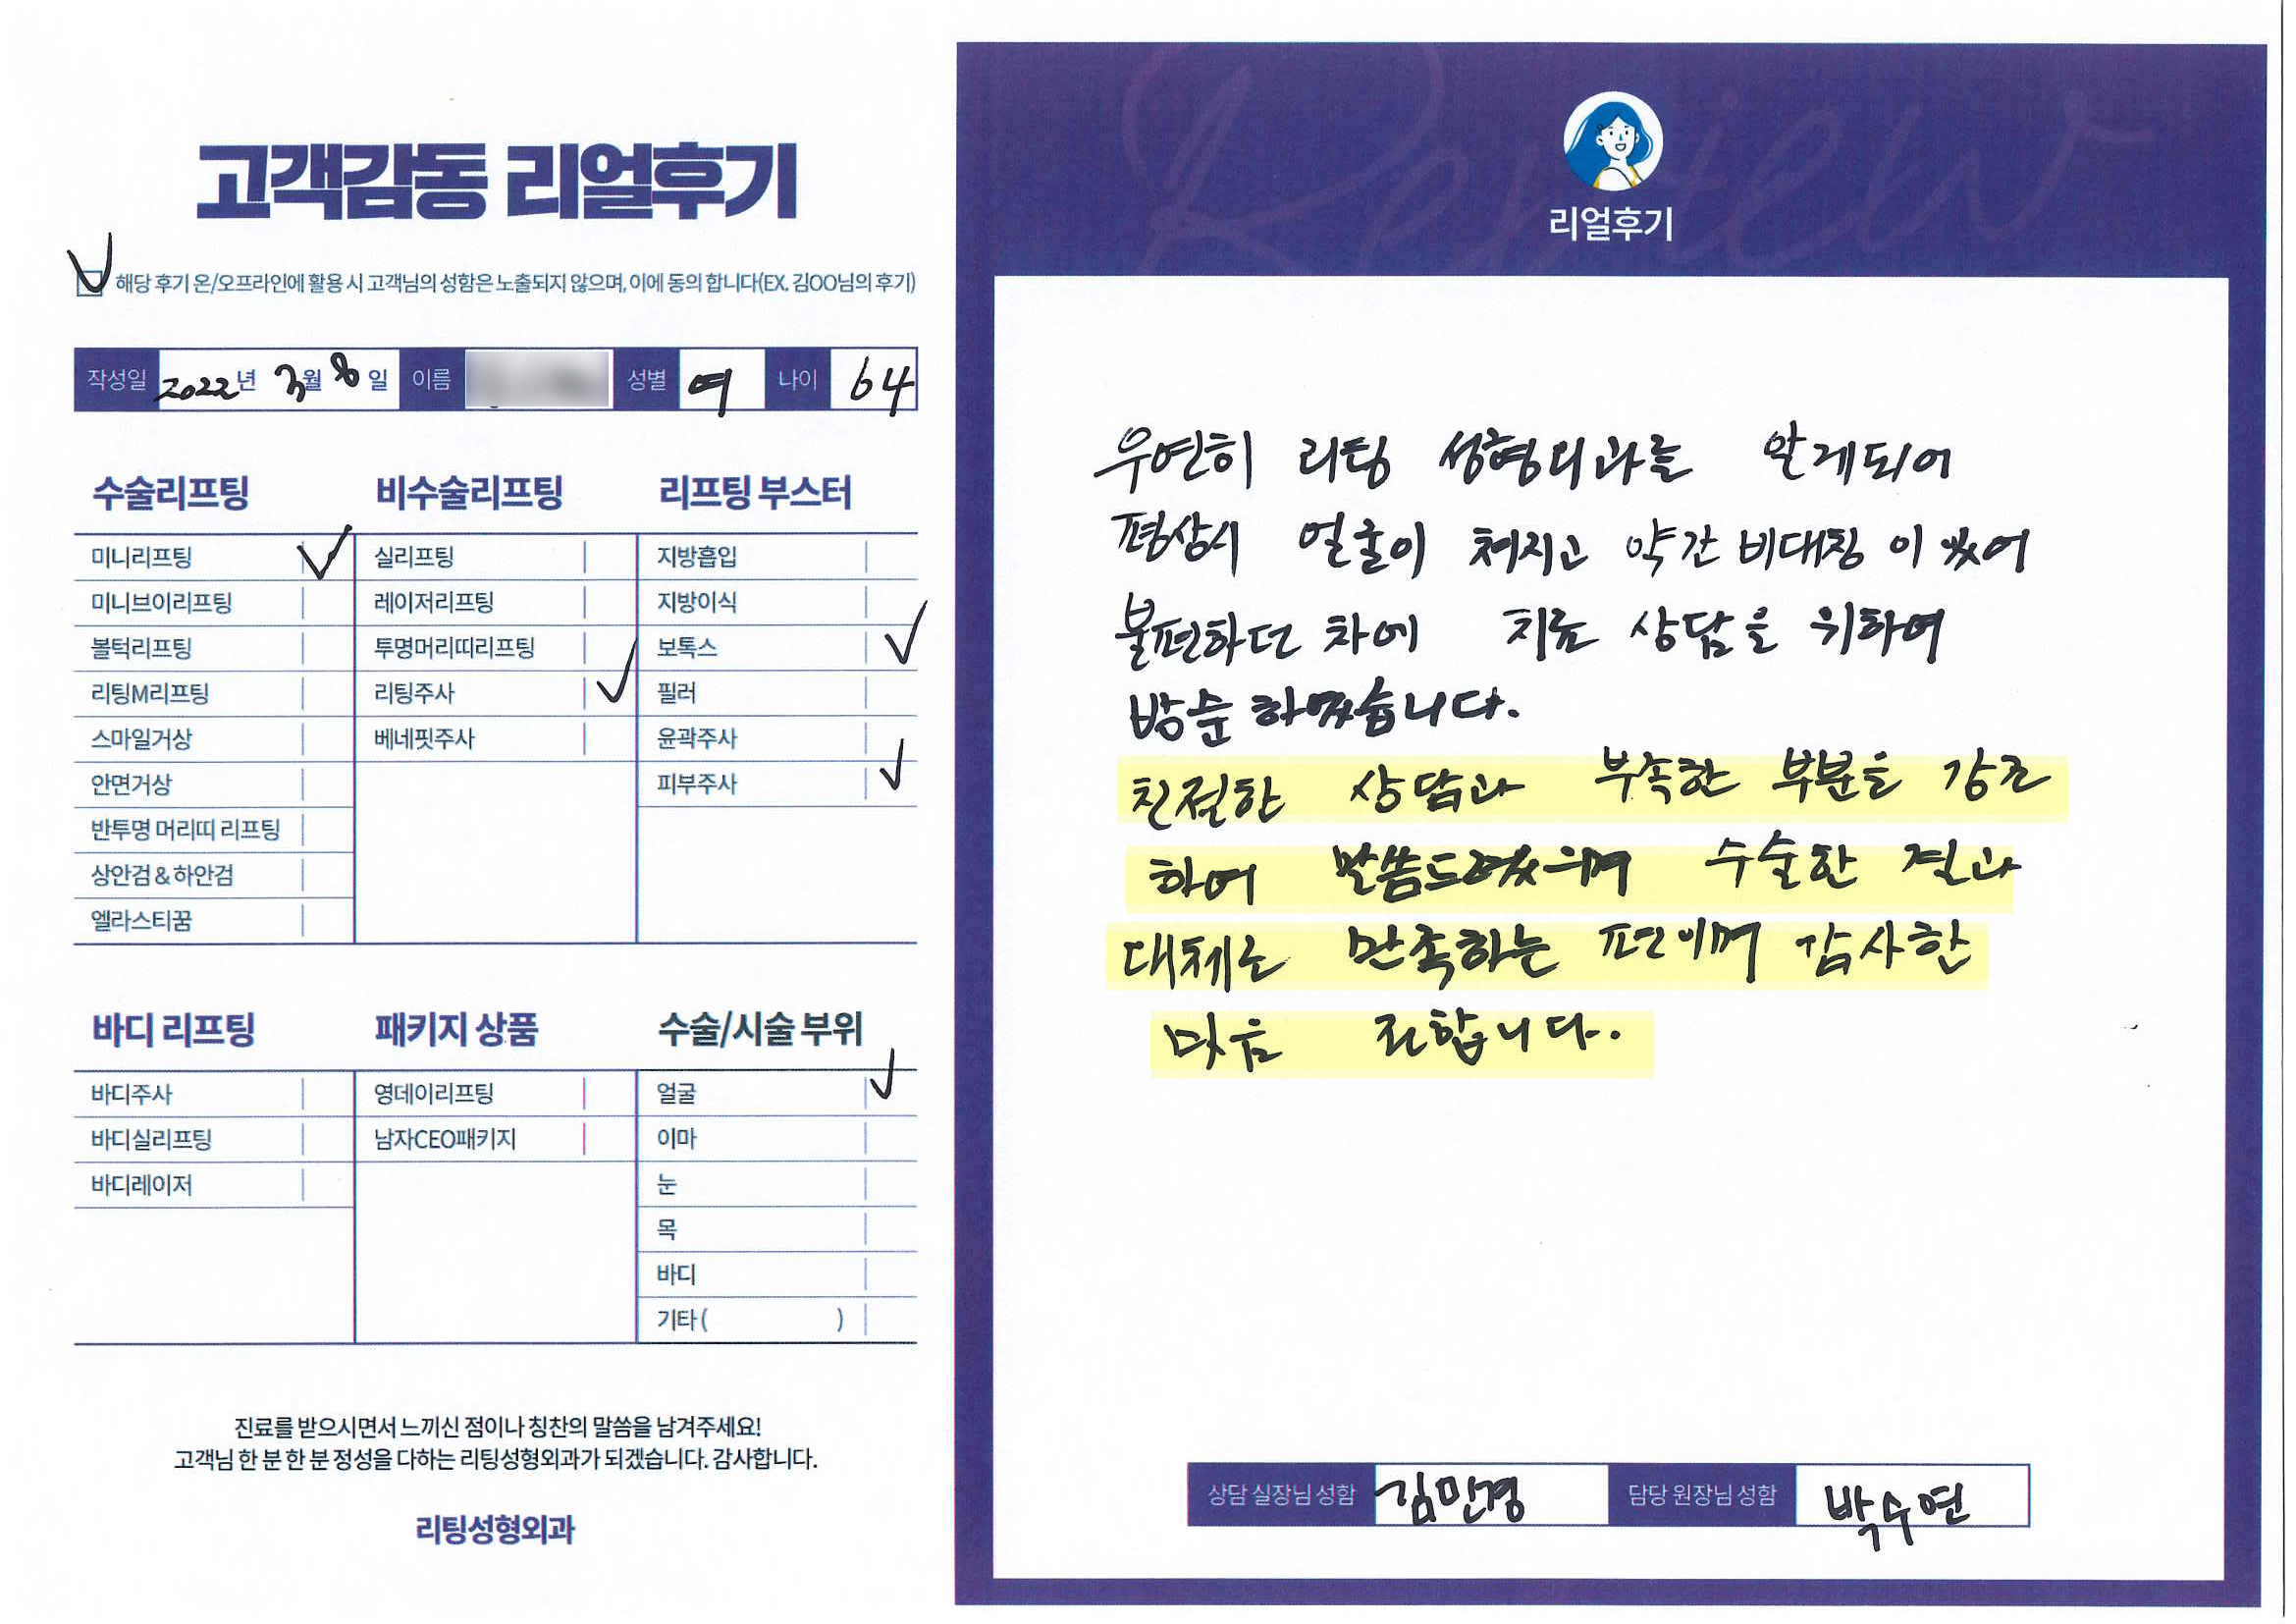 고객감동 리얼후기
해당 후기 온/오프라인에 활용 시 고객님의 성함은 노출되지 않으며, 이에 동의 합니다(EX. 김OO님의 후기)
작성일 2022년 3월 8일 이름 성별 여 나이 64
수술리프팅
미니리프팅
미니브이리프팅
볼턱리프팅
리팅M리프팅
스마일거상
안면거상
반투명 머리띠 리프팅
상안검 & 하안검
엘라스티꿈
비수술리프팅
실리프팅
레이저리프팅
투명머리띠리프팅
리팅주사
베네핏주사
리프팅 부스터
지방흡입
지방이식
보톡스
필러
윤곽주사
피부주사
바디 리프팅
바디주사
바디실리프팅
바디레이저
패키지 상품
영데이리프팅
남자CEO패키지
수술/시술 부위
얼굴
이마
눈
목
바디
기타 ( )
진료를 받으시면서 느끼신 점이나 칭찬의 말씀을 남겨주세요!
고객님 한 분 한 분 정성을 다하는 리팅성형외과가 되겠습니다. 감사합니다.
리팅성형외과
Review
리얼후기
우연히 리팅 성형외과를 알게되어
평상시 얼굴이 쳐지고 약간 비대칭이 있어
불편하던 차에 치료 상담을 위하여
방문 하였습니다.
친절한 상담과 부족한 부분을 강조
하여 말씀드렸으며 수술한 결과
대체로 만족하는 편이며 감사한
마음 전합니다.
상담 실장님 성함 김민경 담당 원장님 성함 박수연